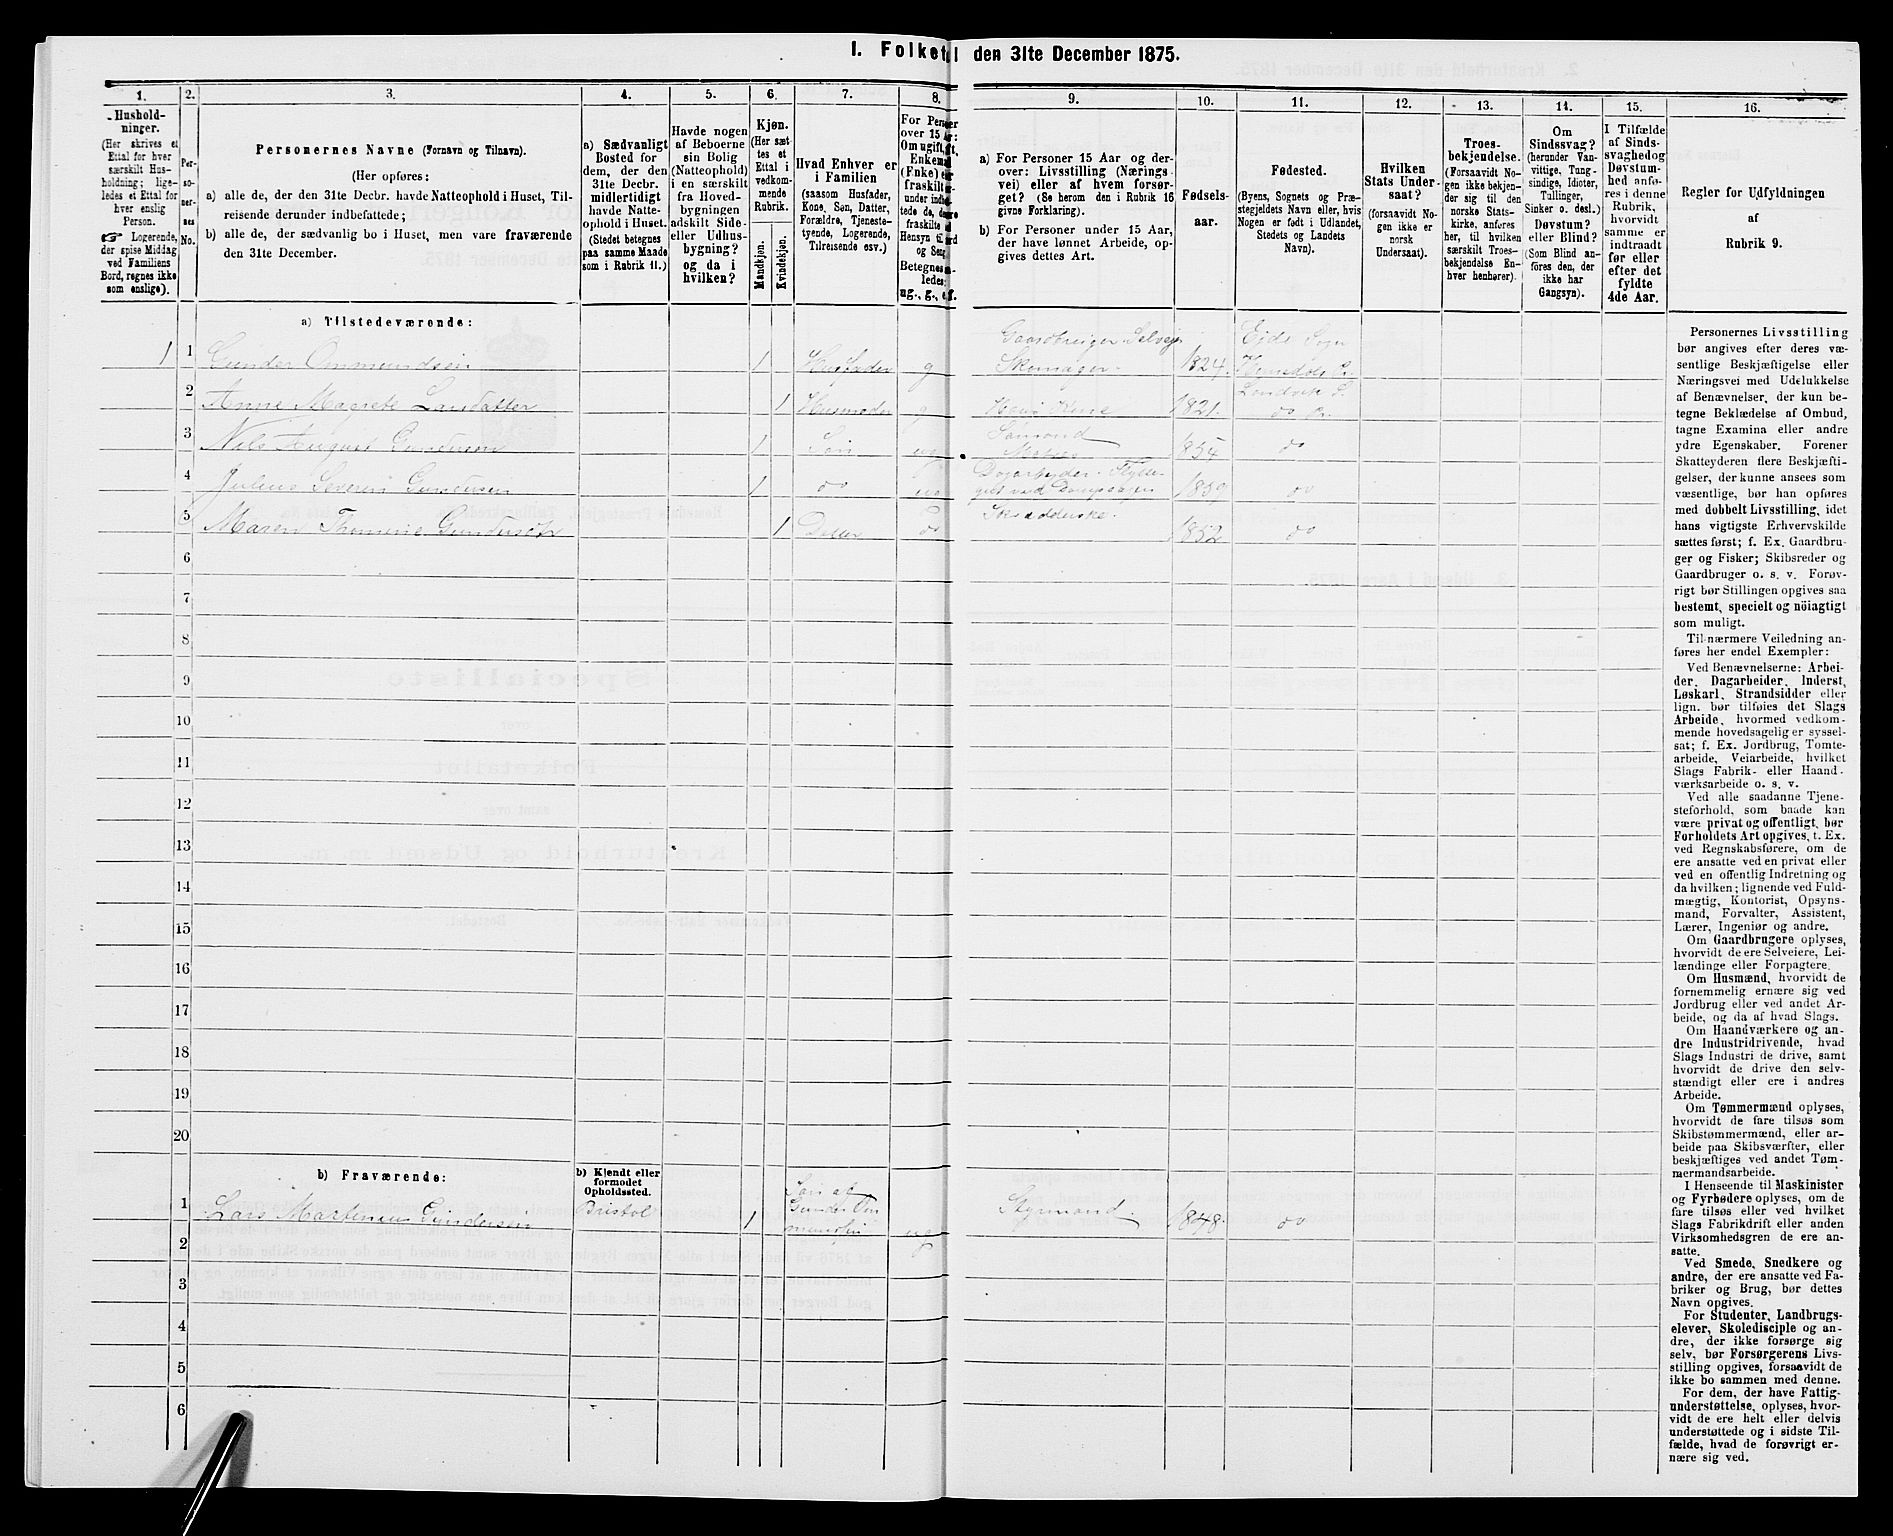 I. Folketal den 31te December 1875.
1.
Hushold-
ninger.
(Her skrives et
Ettal for hver
særskilt Hus-
holdning; lige-
ledes et Ettal for
hver enslig
Person.
☞ Logerende,
der spise Middag
ved Familiens
Bord, regnes ikke
som enslige).
2.
Per-
so-
ner-
nes
No.
3.
Personernes Navne (Fornavn og Tilnavn).
(Her opføres:
a) alle de, der den 31te Decbr. havde Natteophold i Huset, Til-
reisende derunder indbefattede;
b) alle de, der sædvanlig bo i Huset, men vare fraværende
den 31te December.
4.
a) Sædvanligt
Bosted for
dem, der den
31te Decbr.
midlertidigt
havde Natte-
ophold i Huset.
(Stedet betegnes
paa samme Maade
som i Rubrik 11.)
5.
Havde nogen
af Beboerne
sin Bolig
(Natteophold)
i en særskilt
fra Hoved-
bygningen
adskilt Side-
eller Udhus-
bygning?
og da i
hvilken?
6.
Kjøn.
(Her sæt-
tes et
Ettal i
vedkom-
mende
Rubrik.
Mandkjøn.
Kvindekjøn.
7.
Hvad Enhver er
i Familien
(saasom Husfader,
Kone, Søn, Datter,
Forældre, Tjeneste-
tyende, Logerende,
Tilreisende osv.)
8.
9.
a) For Personer 15 Aar og der-
over: Livsstilling (Nærings-
vei) eller af hvem forsør-
get? (Se herom den i Rubrik 16
givne Forklaring).
b) For Personer under 15 Aar,
der have lønnet Arbeide, op-
gives dettes Art.
10.
Fødsels-
aar.
11.
Fødested.
(Byens, Sognets og Præ-
stegjeldets Navn eller, hvis
Nogen er født i Udlandet,
Stedets og Landets
Navn).
12.
Hvilken
Stats Under-
saat?
(forsaavidt No-
gen ikke er
norsk
Undersaat).
13.
Troes-
bekjendelse.
(Forsaavidt No-
gen ikke bekjen-
der sig til den
norske Stats-
kirke, anføres
her, til hvilken
særskilt Troes-
bekjendelse En-
hver henhører).
14.
Om
Sindssvag?
(herunder Van-
vittige, Tung-
sindige, Idioter,
Tullinger,
Sinker o. desl.)
Døvstum?
eller Blind?
(Som Blind an-
føres den, der
ikke har
Gangsyn).
15.
I Tilfælde
af Sinds-
svaghed og
Døvstum-
hed anfø-
res i denne
Rubrik,
hvorvidt
samme er
indtraadt
før eller
efter det
fyldte
4de Aar.
16.
Regler for Udfyldningen
af
Rubrik 9.
a) Tilstedeværende:
1 1 Gunder Ommundsen 1 Husfader g Gaardbruger Selveier Skomager 1824 Eide Sogn
2 Anne Magrete Larsdatter 1 Husmoder g 1821 Landvik S. do
3 Nils August Gundersen 1 Søn ug 1854 do
4 Julius Severin Gundersen 1 do ug Dagarbeider 1859 do
5 Maren Thomine Gundersdtr 1 Datter do Skrædderske 1852 do
6
7
8
9
10
11
12
13
14
15
16
17
18
19
20
b) Fraværende:
b) Kjendt eller
formodet
Opholdssted.
1 Lars Martinius Gundersen Bristol 1 Søn af Gunder Ommundsen ug Styrmand 1848 do
2
3
4
5
6
Personernes Livsstilling
bør angives efter deres væ-
sentlige Beskjæftigelse eller
Næringsvei med Udelukkelse
af Benævnelser, der kun be-
tegne Beklædelse af Ombud,
tagne Examina eller andre
ydre Egenskaber. Forener
Skatteyderen flere Beskjæfti-
gelser, der kunne ansees som
væsentlige, bør han opføres
med dobbelt Livsstilling, idet
hans vigtigste Erhvervskilde
sættes først; f. Ex. Gaardbru-
ger og Fisker; Skibsreder og
Gaardbruger o. s. v. Forøv-
rigt bør Stillingen opgives saa
bestemt, specielt og nöiagtigt
som muligt.
Til nærmere Veiledning an-
føres her endel Exempler:
Ved Benævnelserne: Arbei-
der, Dagarbeider, Inderst,
Løskarl, Strandsidder eller
lign. bør tilføies det Slags
Arbeide, hvormed vedkom-
mende hovedsagelig er syssel-
sat; f. Ex. Jordbrug, Tomte-
arbeide, Veiarbeide, hvilket
Slags Fabrik- eller Haand-
værksarbeide o. s. v.
Ved alle saadanne Tjene-
steforhold, som baade kan
være privat og offentligt, bør
Forholdets Art opgives, t. Ex.
ved Regnskabsførere, om de
ere ansatte ved en privat eller
ved en offentlig Indretning og
da hvilken; lignende ved Fuld-
mægtig, Kontorist, Opsyns-
mand, Forvalter, Assistent,
Lærer, Ingeniør og andre.
Om Gaardbrugere oplyses,
hvorvidt de ere Selveiere, Lei-
lændinge eller Forpagtere.
Om Husmænd, hvorvidt de
fornemmelig ernære sig ved
Jordbrug eller ved andet Ar-
beide, og da af hvad Slags.
Om Haandværkere og an-
dre Industridrivende, hvad
Slags Industri de drive, samt
hvorvidt de drive den selv-
stændigt eller ere i andres
Arbeide.
Om Tømmermænd oplyses,
hvorvidt de fare tilsøs som
Skibstømmermænd, eller ar-
beide paa Skibsværfter, eller
beskjæftiges ved andet Tøm-
mermandsarbeide.
I Henseende til Maskinister
og Fyrbødere oplyses, om de
fare tilsøs eller ved hvilket
Slags Fabrikdrift eller anden
Virksomhedsgren de ere an-
satte.
Ved Smede, Snedkere og
andre, der ere ansatte ved Fa-
briker og Brug, bør dettes
Navn opgives.
For Studenter, Landbrugs-
elever, Skoledisciple og an-
dre, der ikke forsørge sig
selv, bør Forsørgerens Livs-
stilling opgives, forsaavidt de
ikke bo sammen med denne.
For dem, der have Fattig-
understøttelse, oplyses, hvor-
vidt de ere helt eller delvis
understøttede og i sidste Til-
fælde, hvad de forøvrigt er-
nære sig ved.